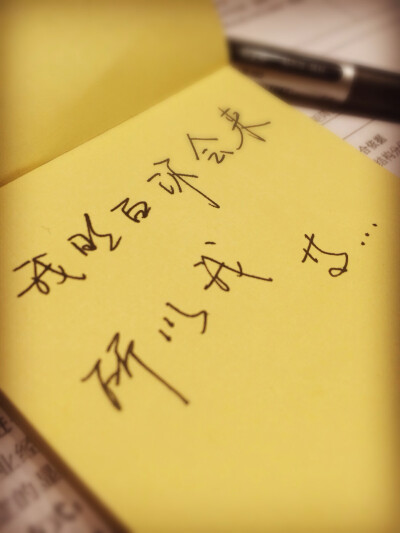 我明白你会来
所以我等...